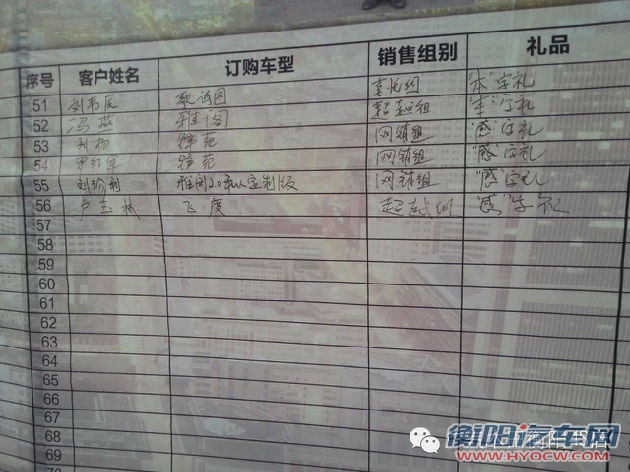 序号 客户姓名 订购车型 销售组别 礼品
51 歌诗图 "本"字礼
52 冯燕 雅阁 超越组 "本"字礼
53 刘杨 锋范 网销组 "感"字礼
54 锋范 网销组 "感"字礼
55 刘珍 雅阁2.0 定制版 网销组 "感"字礼
56 卢 飞度 超越组 "感"字礼
57
58
59
60
61
62
63
64
65
66
67
68
69
70
衡阳汽车网
WWW.HYQCW.COM